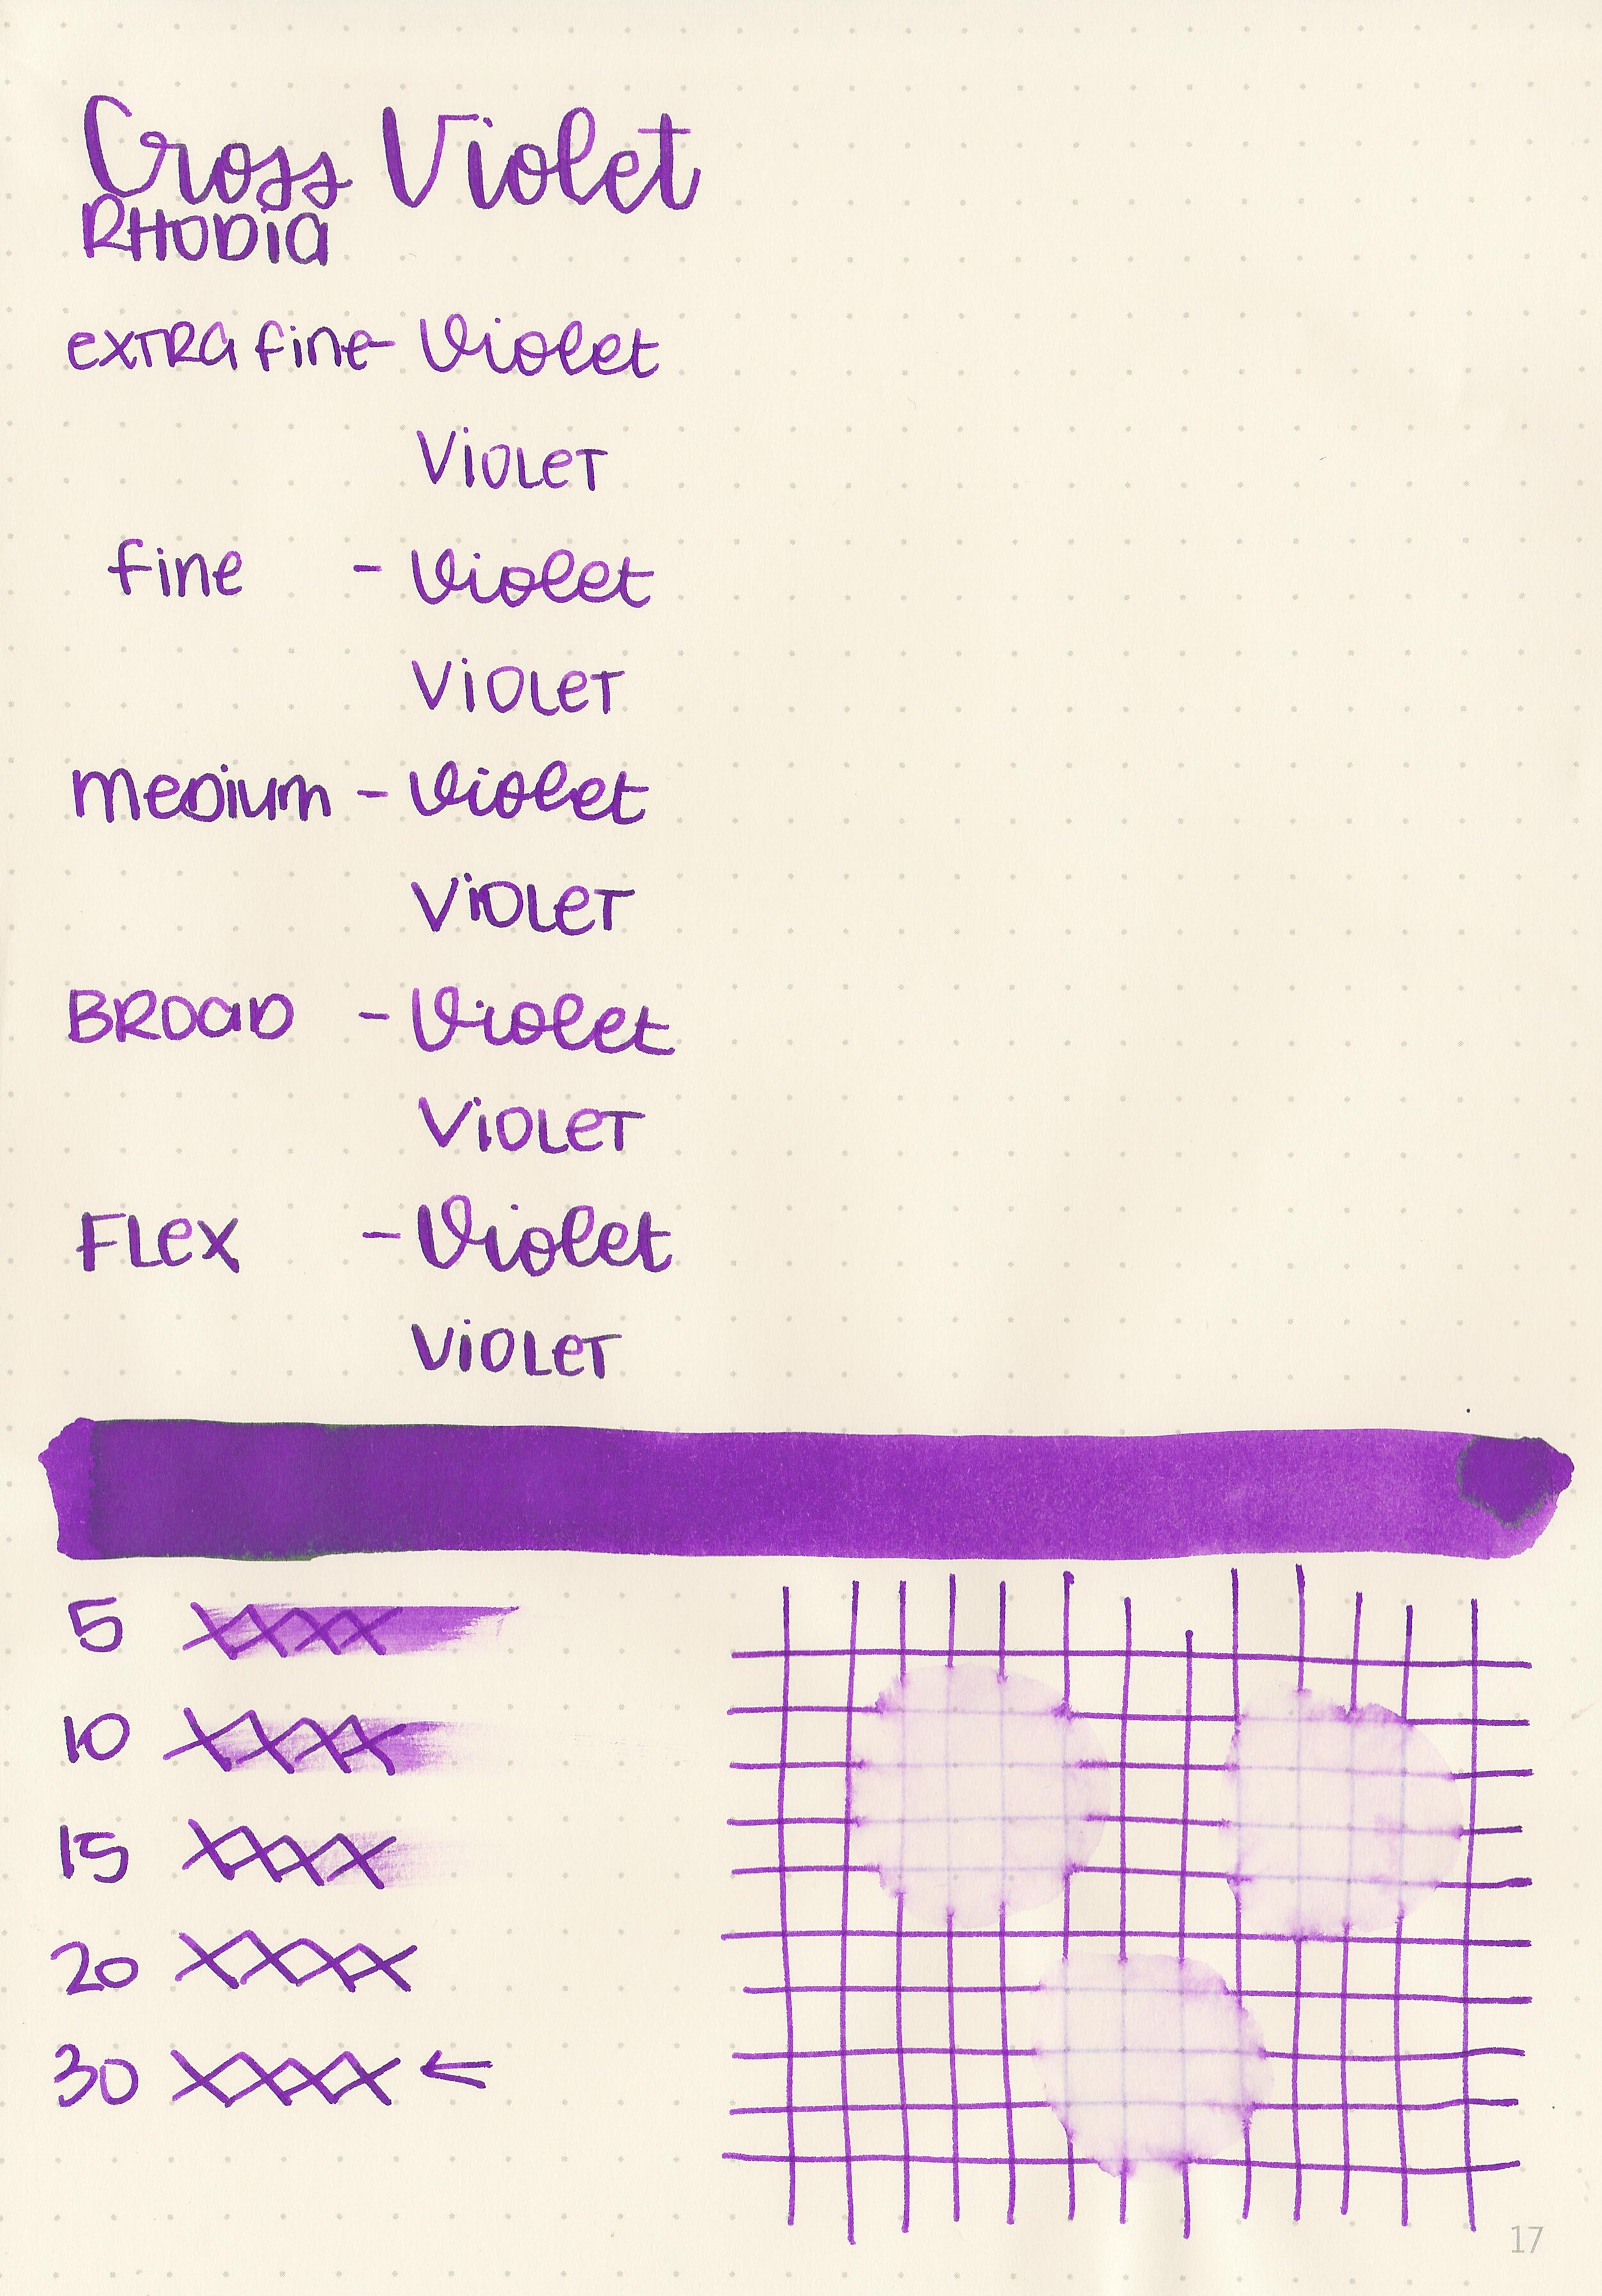 Cross Violet
RHODIA
extra fine - Violet
Violet
fine - Violet
Violet
medium - Violet
Violet
Broad - Violet
Violet
Flex - Violet
Violet
5 XXXX
10 XXXX
15 XXXX
20 XXXX
30 XXXX ←
17